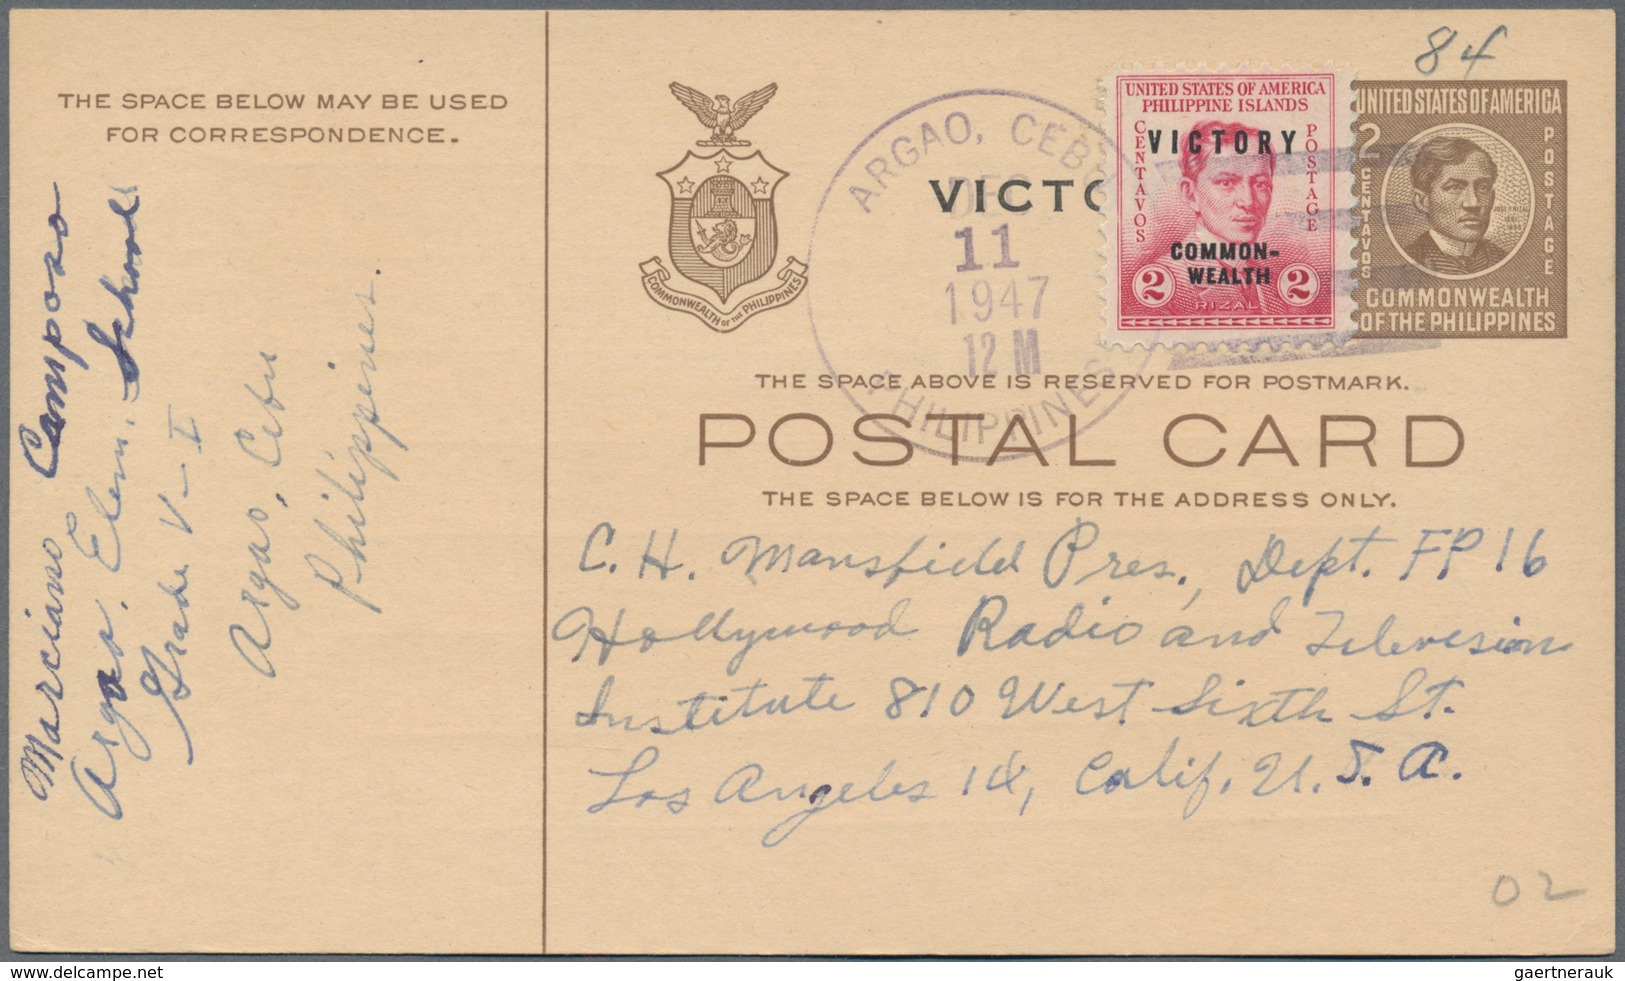 THE SPACE BELOW MAY BE USED
FOR CORRESPONDENCE.
Marciano Camposo
Argao. Elem. School
Grade V-I
Argao, Cebu
Philippines
COMMONWEALTH OF THE PHILIPPINES
VICTO
ARGAO, CEBU
DEC
11
1947
12 M
PHILIPPINES
84
UNITED STATES OF AMERICA
PHILIPPINE ISLANDS
CENTAVOS
VICTORY
POSTAGE
COMMON-
WEALTH
2 RIZAL 2
UNITED STATES OF AMERICA
2 CENTAVOS
POSTAGE
COMMONWEALTH
OF THE PHILIPPINES
THE SPACE ABOVE IS RESERVED FOR POSTMARK.
POSTAL CARD
THE SPACE BELOW IS FOR THE ADDRESS ONLY.
C. H. Mansfield Pres., Dept. FP 16
Hollywood Radio and Television
Institute 810 West Sixth St.
Los Angeles 14, Calif. U. S. A.
02
www.delcampe.net
gaertnerauk